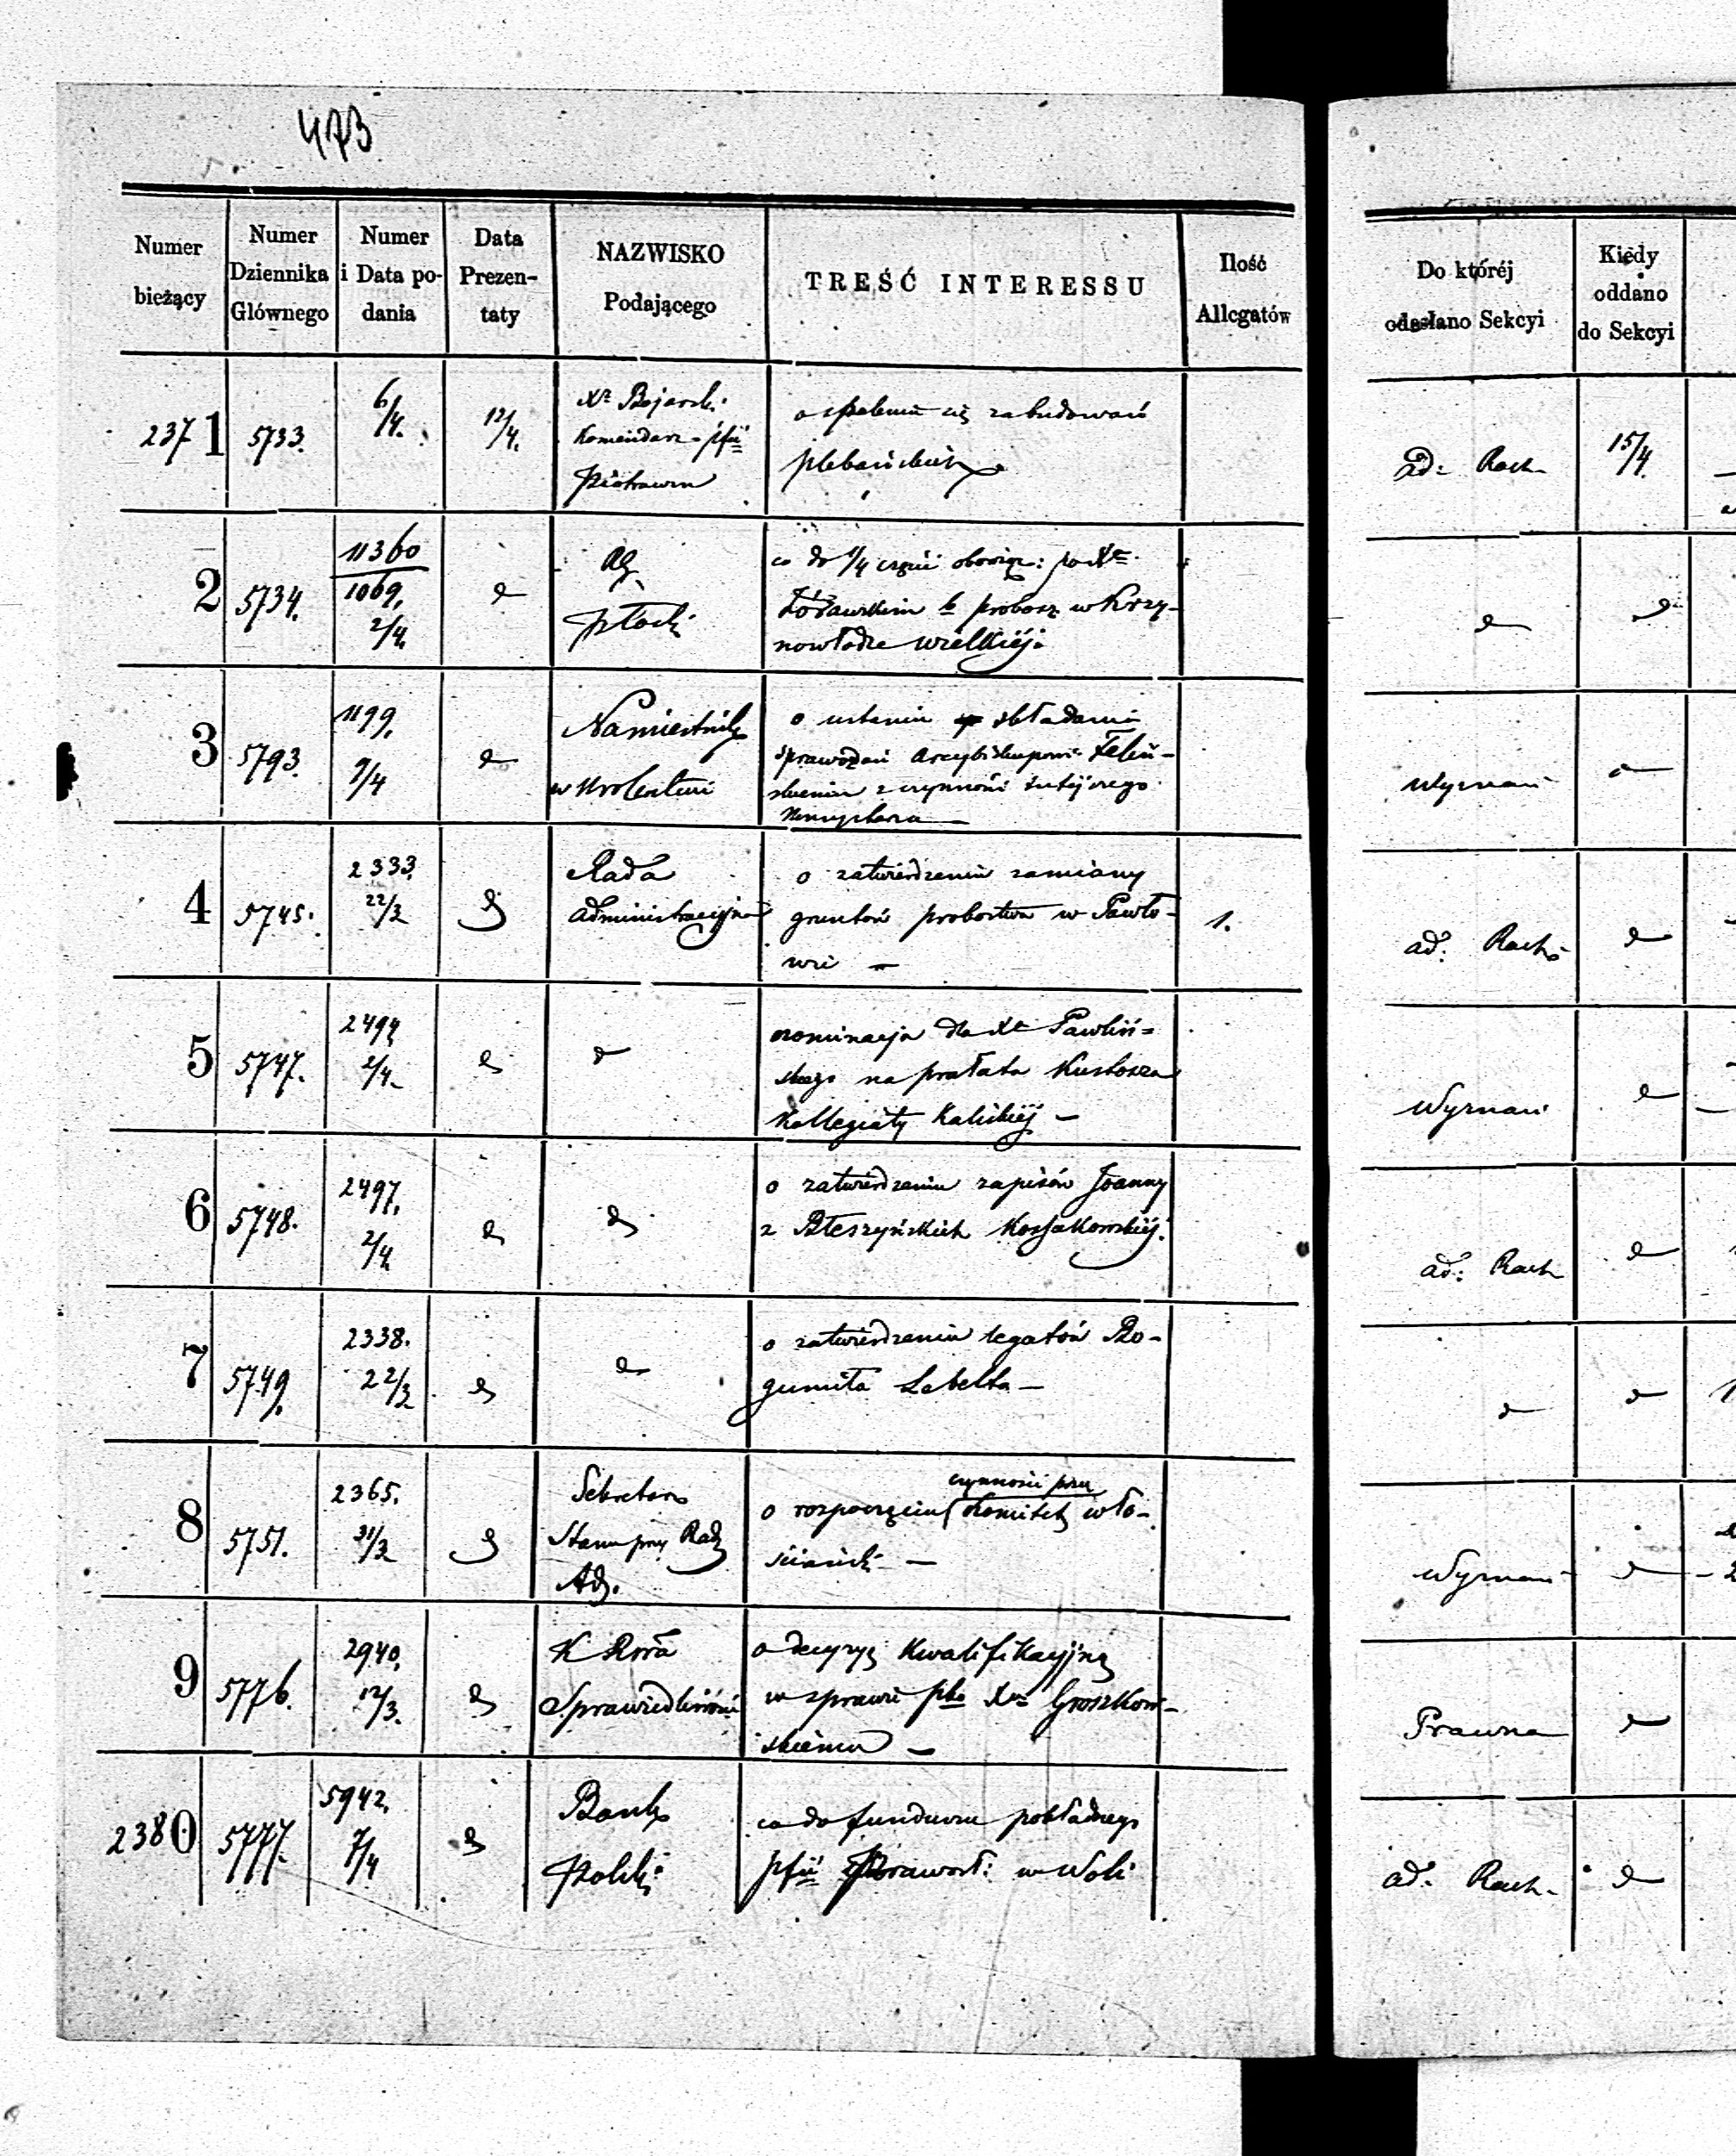 473
Numer bieżący
Numer Dziennika Głównego
Numer i Data podania
Data Prezentaty
NAZWISKO Podającego
TREŚĆ INTERESSU
Ilość Allegatów
Do któréj odesłano Sekcyi
Kiedy oddano do Sekcyi
2371
5733.
6/4.
12/4.
Xdz Bojarski
Komendarz pfii
Piotrawin
o spaleniu się zabudowań
plebańskich
ad: Rach
15/4.
2
5734.
11360
1069.
2/4
RG
Płocki
co do 1/4 części obowiąz: po Xdzu
Żórawskim b probosz w Krzy-
nowłodze wielkiéj.
3
5793.
1199.
9/4
Namiestnik
w Królestwie
o ustaniu składania
sprawozdań Arcybiskupowi Feliń-
skiemu z czynności tutejszego
Wyznań
4
5745.
2333.
22/3
Rada
Administracyjna
o zatwierdzeniu zamiany
gruntów probostwa w Pawło-
wie —
1.
ad: Rach
5
5747.
2494
2/4
nominacja dla Xdza Pawliń-
skiego na prałata Kustosza
Kollegiaty Kaliskiéj —
Wyznań
6
5748.
2497.
2/4
o zatwierdzeniu zapisów Joanny
z Błeszyńskich Kossakowskiéj.
ad: Rach
7
5749.
2338.
22/3
o zatwierdzeniu legatów Bo-
gumiła Lebelta —
8
5751.
2365.
31/3
Sekretarz
Stanu przy Radz
Ad.
czynności przez
o rozpoczęciu Komitet wło-
ściański —
Wyznań
9
5776.
2940.
12/3.
K Rząd
Sprawiedliwości
o decyzyę Kwalifikacyjną
w sprawie pko Xdzu Groszkow-
skiemu —
Prawna
2380
5777.
5942.
7/4
Bank
Polski
co do funduszu pokładnego
pfii Prawosł: w Woli
ad: Rach